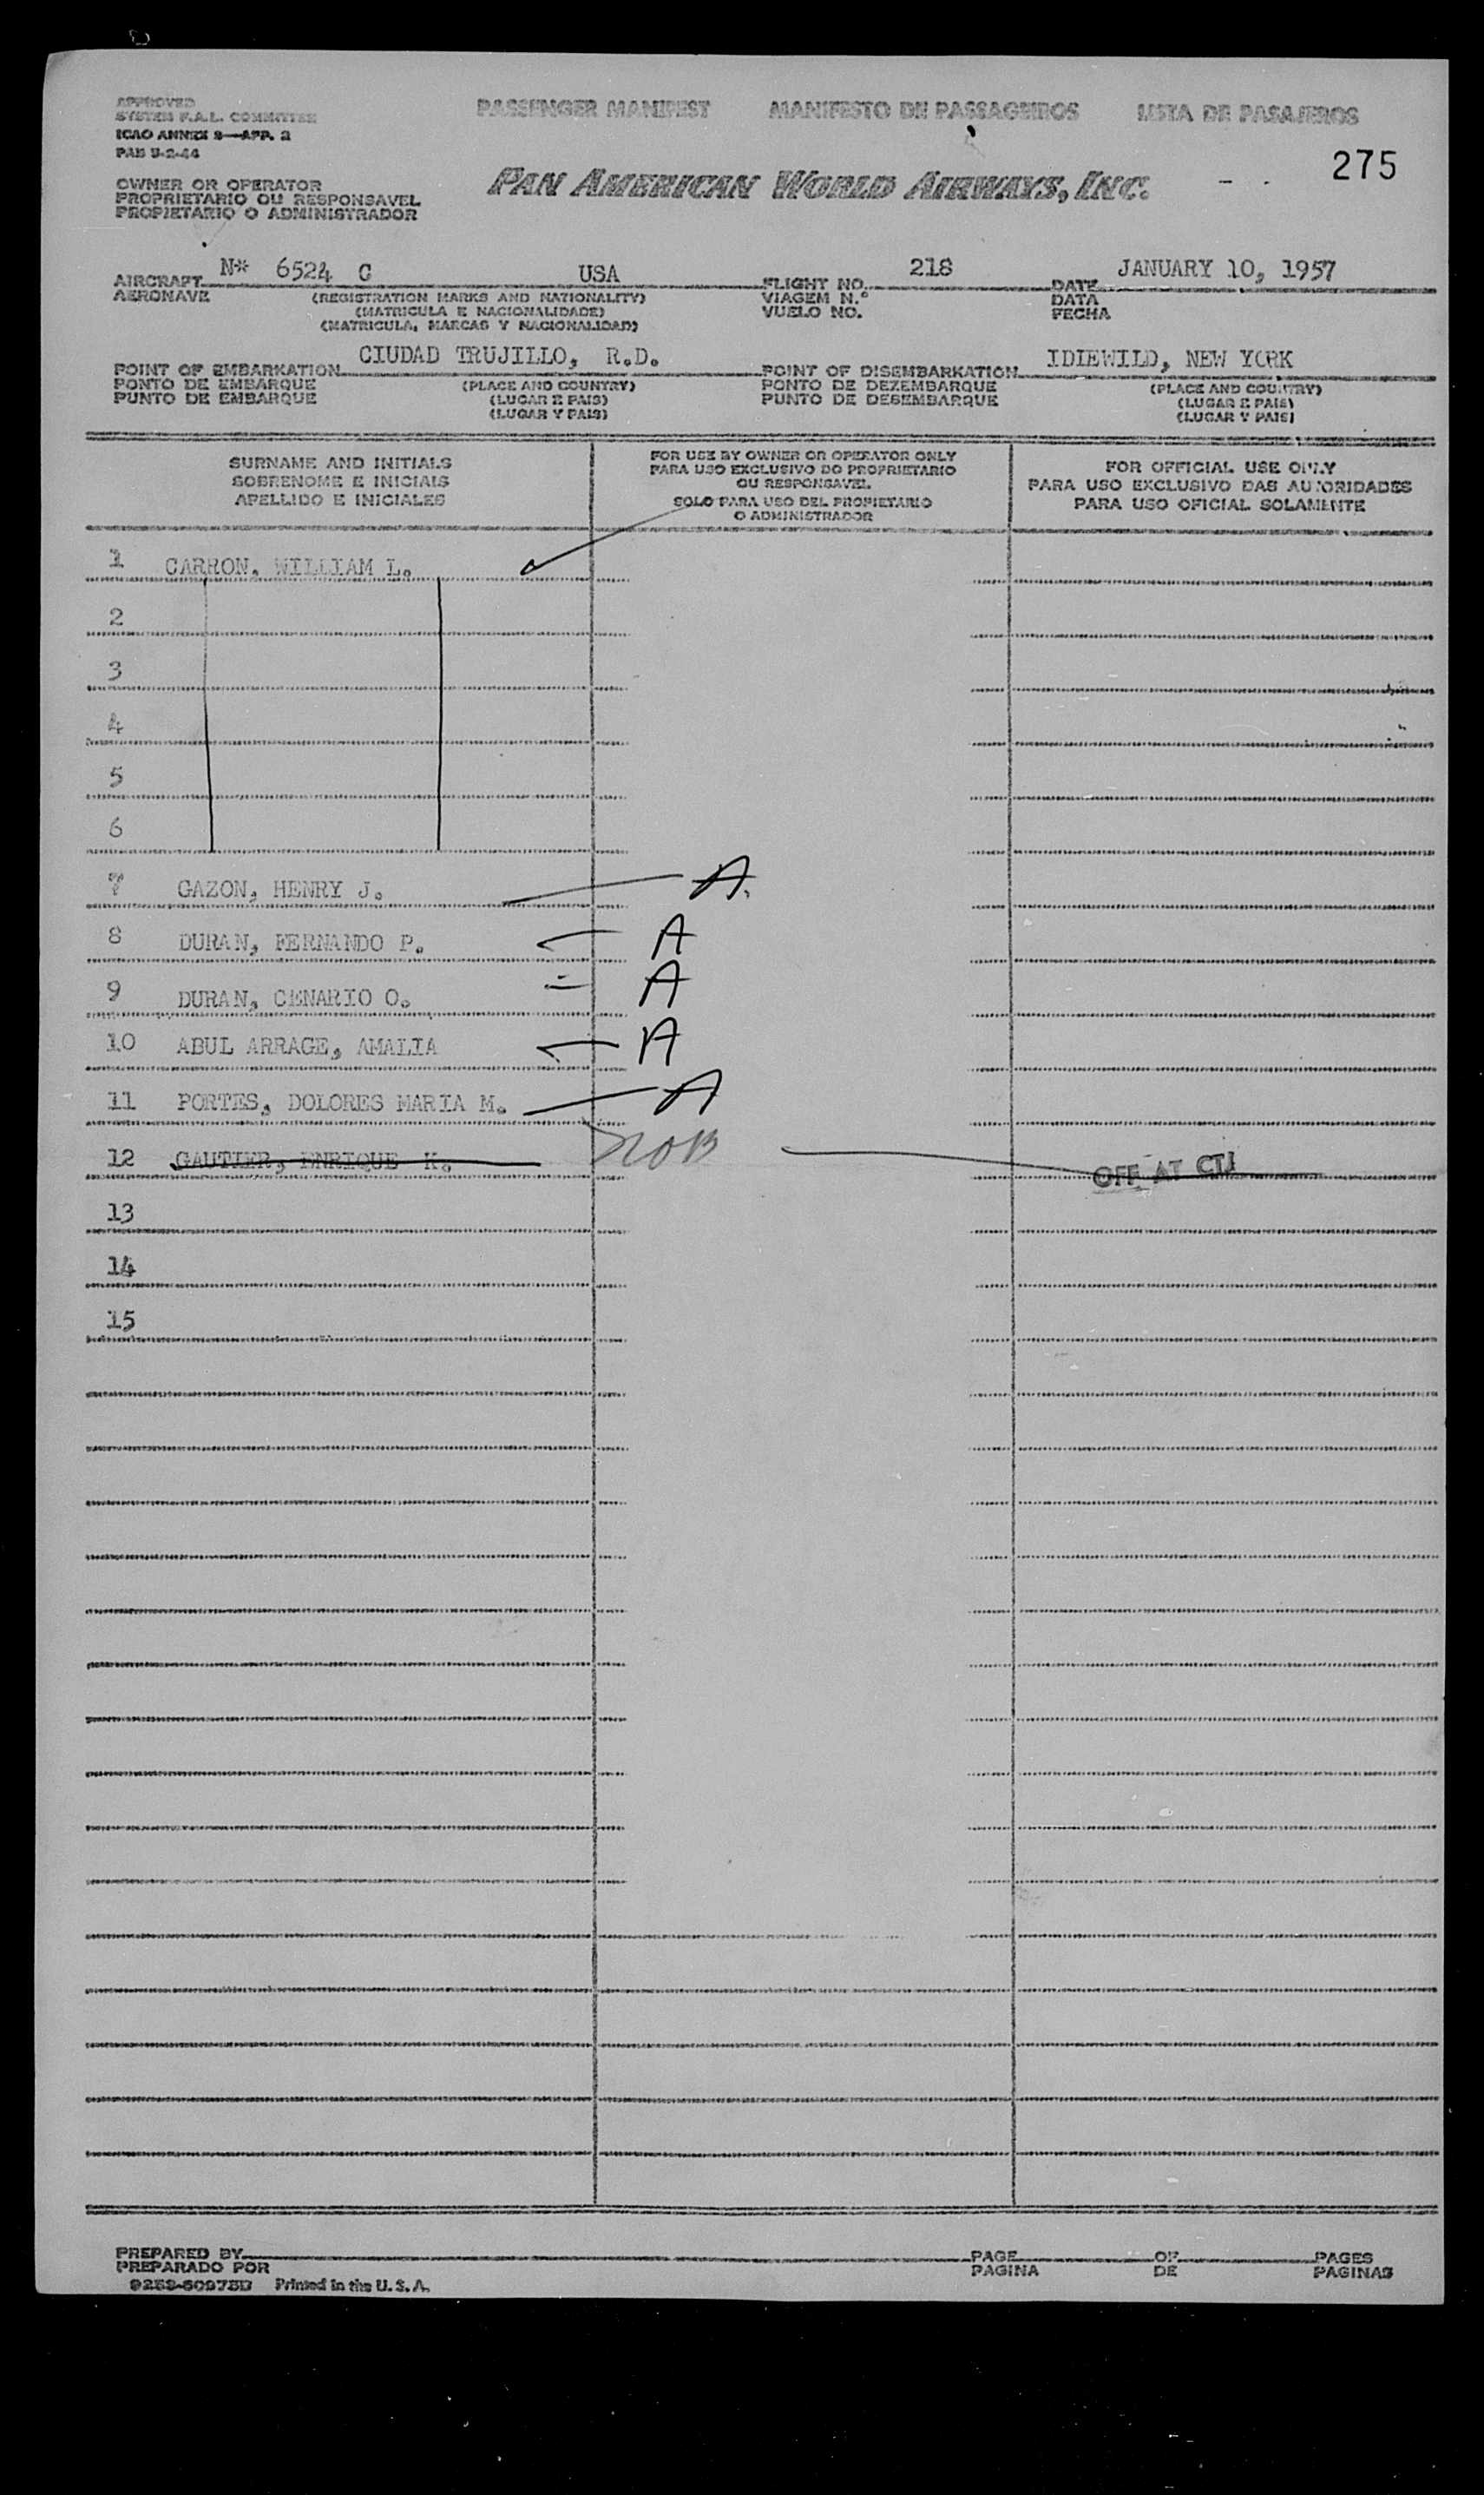 APPROVED
SYSTEM F.A.L. COMMITTEE
ICAO ANNEX 9—APP. 2
PAN 9-2-44
PASSENGER MANIFEST MANIFESTO DE PASSAGEIROS LISTA DE PASAJEROS
275
OWNER OR OPERATOR
PROPRIETARIO OU RESPONSAVEL
PROPIETARIO O ADMINISTRADOR
PAN AMERICAN WORLD AIRWAYS, INC.
AIRCRAFT N* 6524 C USA FLIGHT NO. 218 DATE JANUARY 10, 1957
AERONAVE (REGISTRATION MARKS AND NATIONALITY) VIAGEM N.º DATA
(MATRICULA E NACIONALIDADE) VUELO NO. FECHA
(MATRICULA, MARCAS Y NACIONALIDAD)
POINT OF EMBARKATION CIUDAD TRUJILLO, R.D. POINT OF DISEMBARKATION IDIEWILD, NEW YORK
PONTO DE EMBARQUE (PLACE AND COUNTRY) PONTO DE DEZEMBARQUE (PLACE AND COUNTRY)
PUNTO DE EMBARQUE (LUGAR E PAIS) PUNTO DE DESEMBARQUE (LUGAR E PAIS)
(LUGAR Y PAIS) (LUGAR Y PAIS)
SURNAME AND INITIALS
SOBRENOME E INICIAIS
APELLIDO E INICIALES
FOR USE BY OWNER OR OPERATOR ONLY
PARA USO EXCLUSIVO DO PROPRIETARIO
OU RESPONSAVEL
SOLO PARA USO DEL PROPIETARIO
O ADMINISTRADOR
FOR OFFICIAL USE ONLY
PARA USO EXCLUSIVO DAS AUTORIDADES
PARA USO OFICIAL SOLAMENTE
1 CARRON, WILLIAM L.
2
3
4
5
6
7 GAZON, HENRY J. A
8 DURAN, FERNANDO P. A
9 DURAN, CENARIO O. A
10 ABUL ARRAGE, AMALIA A
11 PORTES, DOLORES MARIA M. A
12 GAUTIER, ENRIQUE K. NOB OFF AT CTJ
13
14
15
PREPARED BY PAGE OF PAGES
PREPARADO POR PAGINA DE PAGINAS
Printed in the U. S. A.